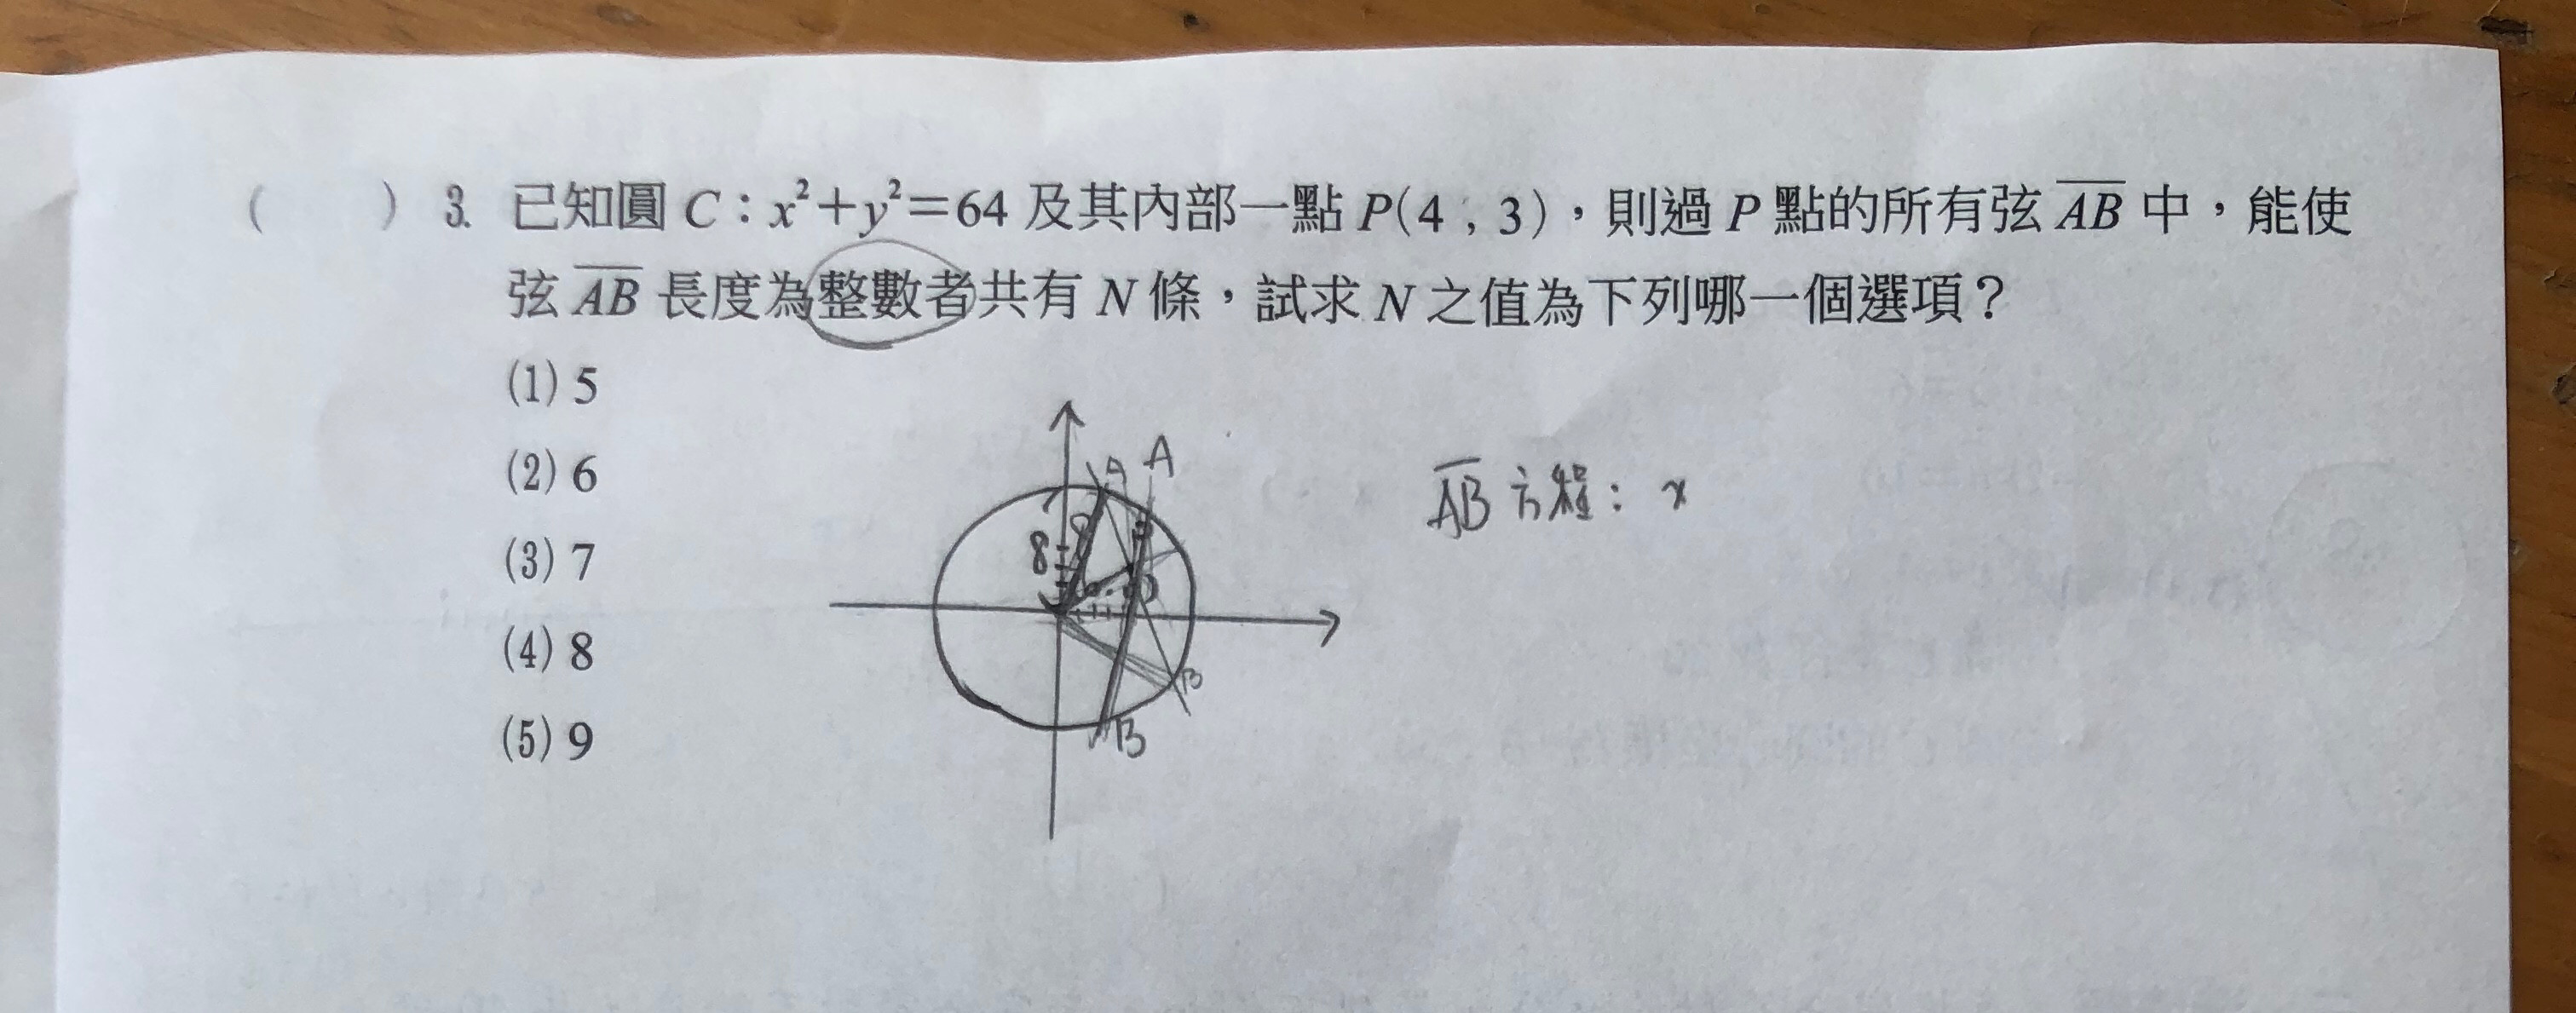 ( ) 3. 已知圓 C：x²+y²=64 及其內部一點 P(4 , 3)，則過 P 點的所有弦 AB 中，能使
弦 AB 長度為整數者共有 N 條，試求 N 之值為下列哪一個選項？
(1) 5
(2) 6
(3) 7
(4) 8
(5) 9
A A
8
B
B
AB 方程： x